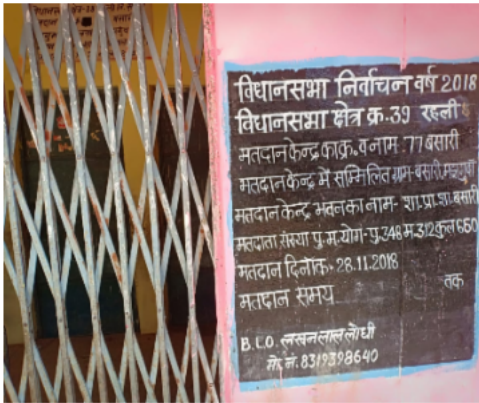 विधानसभा निर्वाचन वर्ष 2018
विधानसभा क्षेत्र क्र.39 रहली
मतदान केन्द्र का क्र. व नाम :77 बसारी
मतदान केन्द्र में सम्मिलित ग्राम-बसारी,
मतदान केन्द्र भवन का नाम- शा.प्रा.शा. बसारी
मतदाता संख्या पु.म.योग-पु.348 म.312 कुल 660
मतदान दिनांक- 28.11.2018
मतदान समय तक
B.L.O. लखनलाल लोधी
मो.नं.8319398640